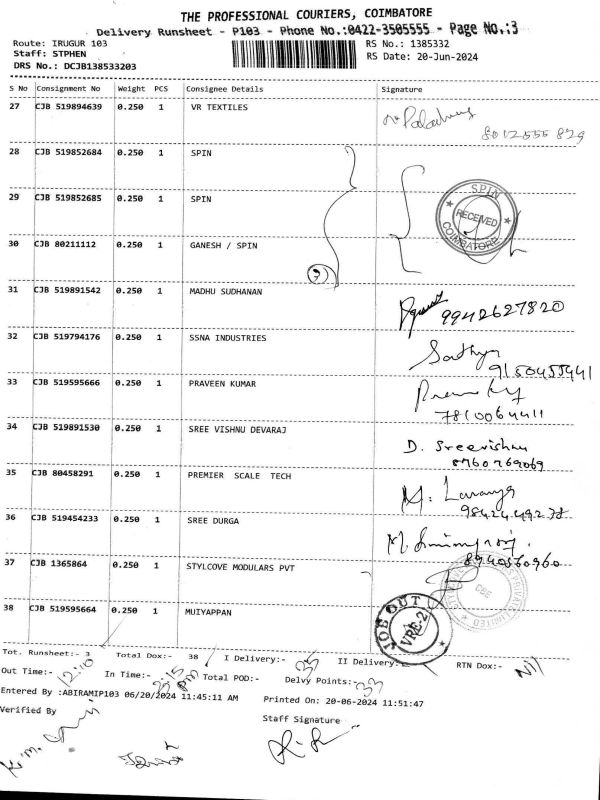 THE PROFESSIONAL COURIERS, COIMBATORE
Delivery Runsheet - P103 - Phone No.:0422-3505555 - Page No.:3
Route: IRUGUR 103
RS No.: 1385332
Staff: STPHEN
RS Date: 20-Jun-2024
DRS No.: DCJB138533203
S No Consignment No Weight PCS Consignee Details Signature
27 CJB 519894639 0.250 1 VR TEXTILES
28 CJB 519852684 0.250 1 SPIN
29 CJB 519852685 0.250 1 SPIN
SPIN
RECEIVED
COIMBATORE
30 CJB 80211112 0.250 1 GANESH / SPIN
31 CJB 519891542 0.250 1 MADHU SUDHANAN
9942627820
32 CJB 519794176 0.250 1 SSNA INDUSTRIES
Sathya
9150455941
33 CJB 519595666 0.250 1 PRAVEEN KUMAR
7810064411
34 CJB 519891530 0.250 1 SREE VISHNU DEVARAJ
D. Sreevishnu
8760769069
35 CJB 80458291 0.250 1 PREMIER SCALE TECH
M. Lavanya
9842449278
36 CJB 519454233 0.250 1 SREE DURGA
8940560960
37 CJB 1365864 0.250 1 STYLCOVE MODULARS PVT
38 CJB 519595664 0.250 1 MUIYAPPAN
JOE OUT
VRE-2
Tot. Runsheet:- 3 Total Dox:- 38 I Delivery:- 35 II Delivery:- RTN Dox:- Nil
Out Time:- 12:10 In Time:- 3:15 pm Total POD:- Delvy Points:- 33
Entered By :ABIRAMIP103 06/20/2024 11:45:11 AM Printed On: 20-06-2024 11:51:47
Verified By
Staff Signature